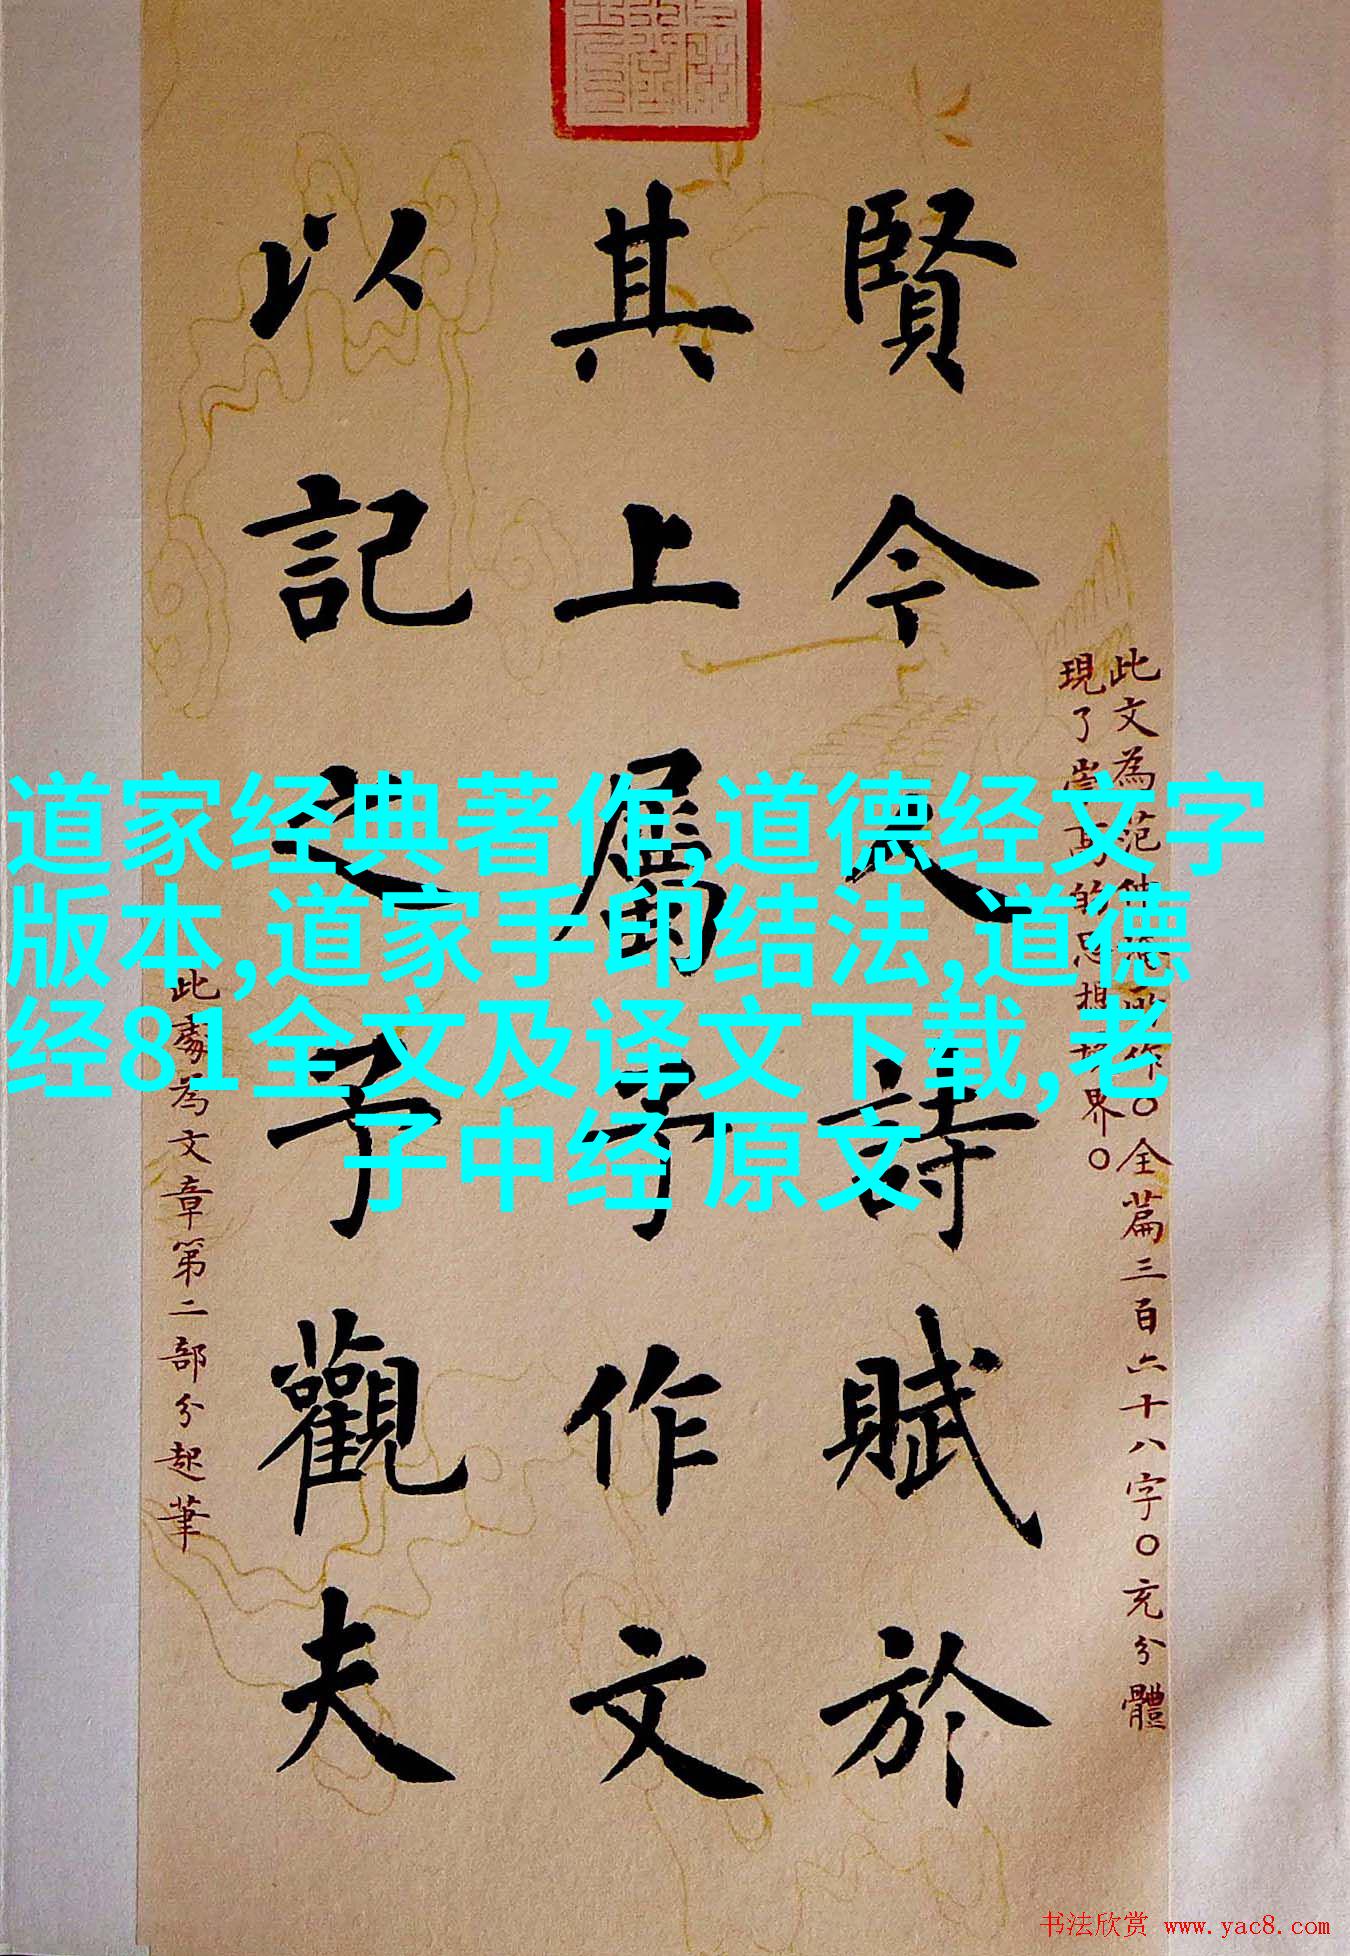 賢今人詩賦於
其上屬予作文
以記之予觀夫
此文為范仲淹所作〇全篇三百六十八字〇充分體
現了崇高的思想境界〇
此處為文章第二部分起筆
道家经典著作,道德经文字
版本,道家手印结法,道德
经81全文及译文下载,老
子中经 原文
书法欣赏 www.yac8.com